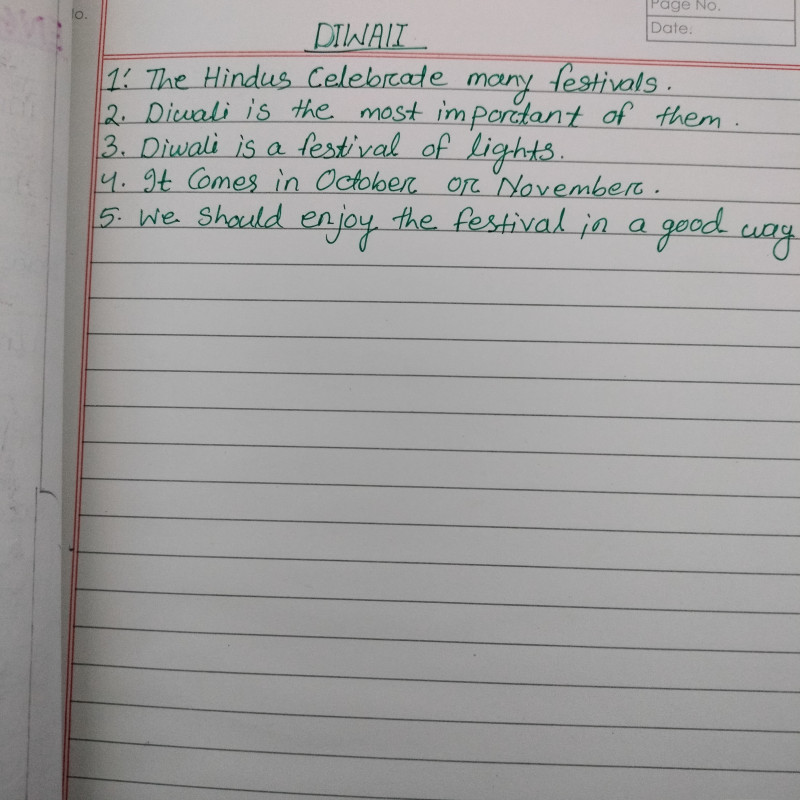 lo.
Page No.
Date:
DIWALI
1. The Hindus Celebrate many festivals.
2. Diwali is the most important of them.
3. Diwali is a festival of lights.
4. It Comes in October or November.
5. We Should enjoy the festival in a good way